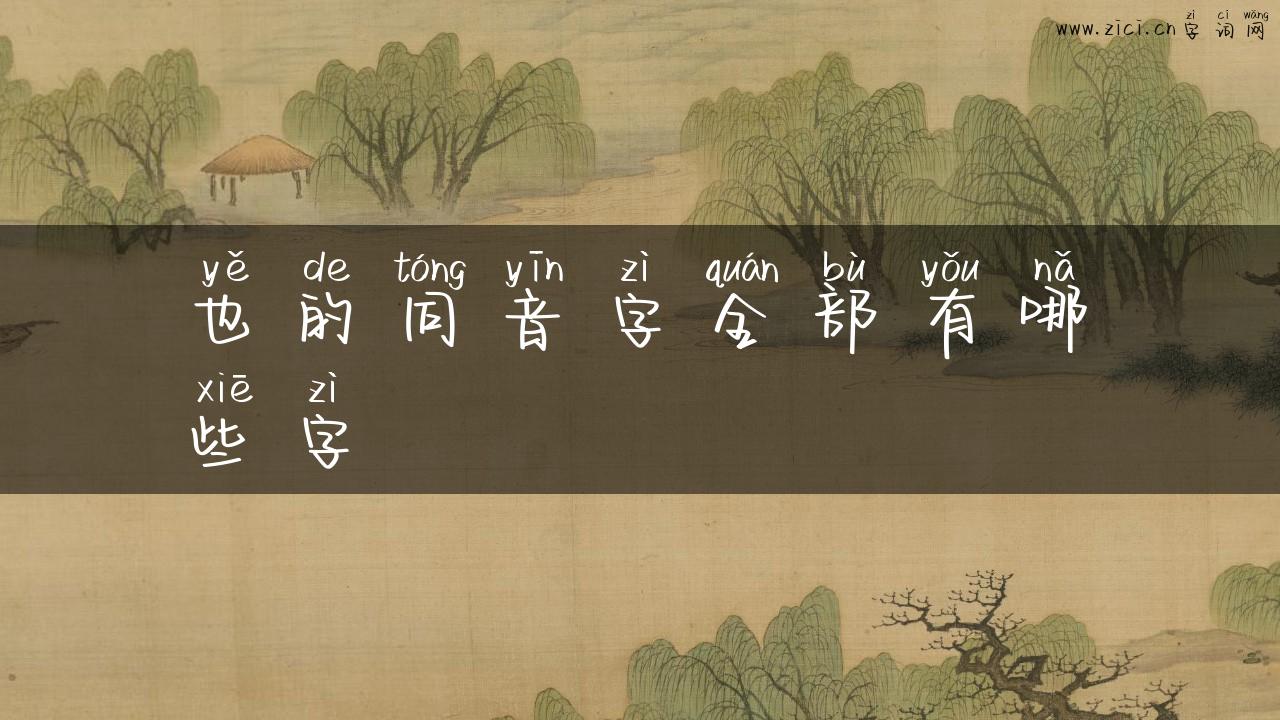 zì cí wǎng
www.zici.cn字词网
yě de tóng yīn zì quán bù yǒu nǎ
也的同音字全部有哪
xiē zì
些字